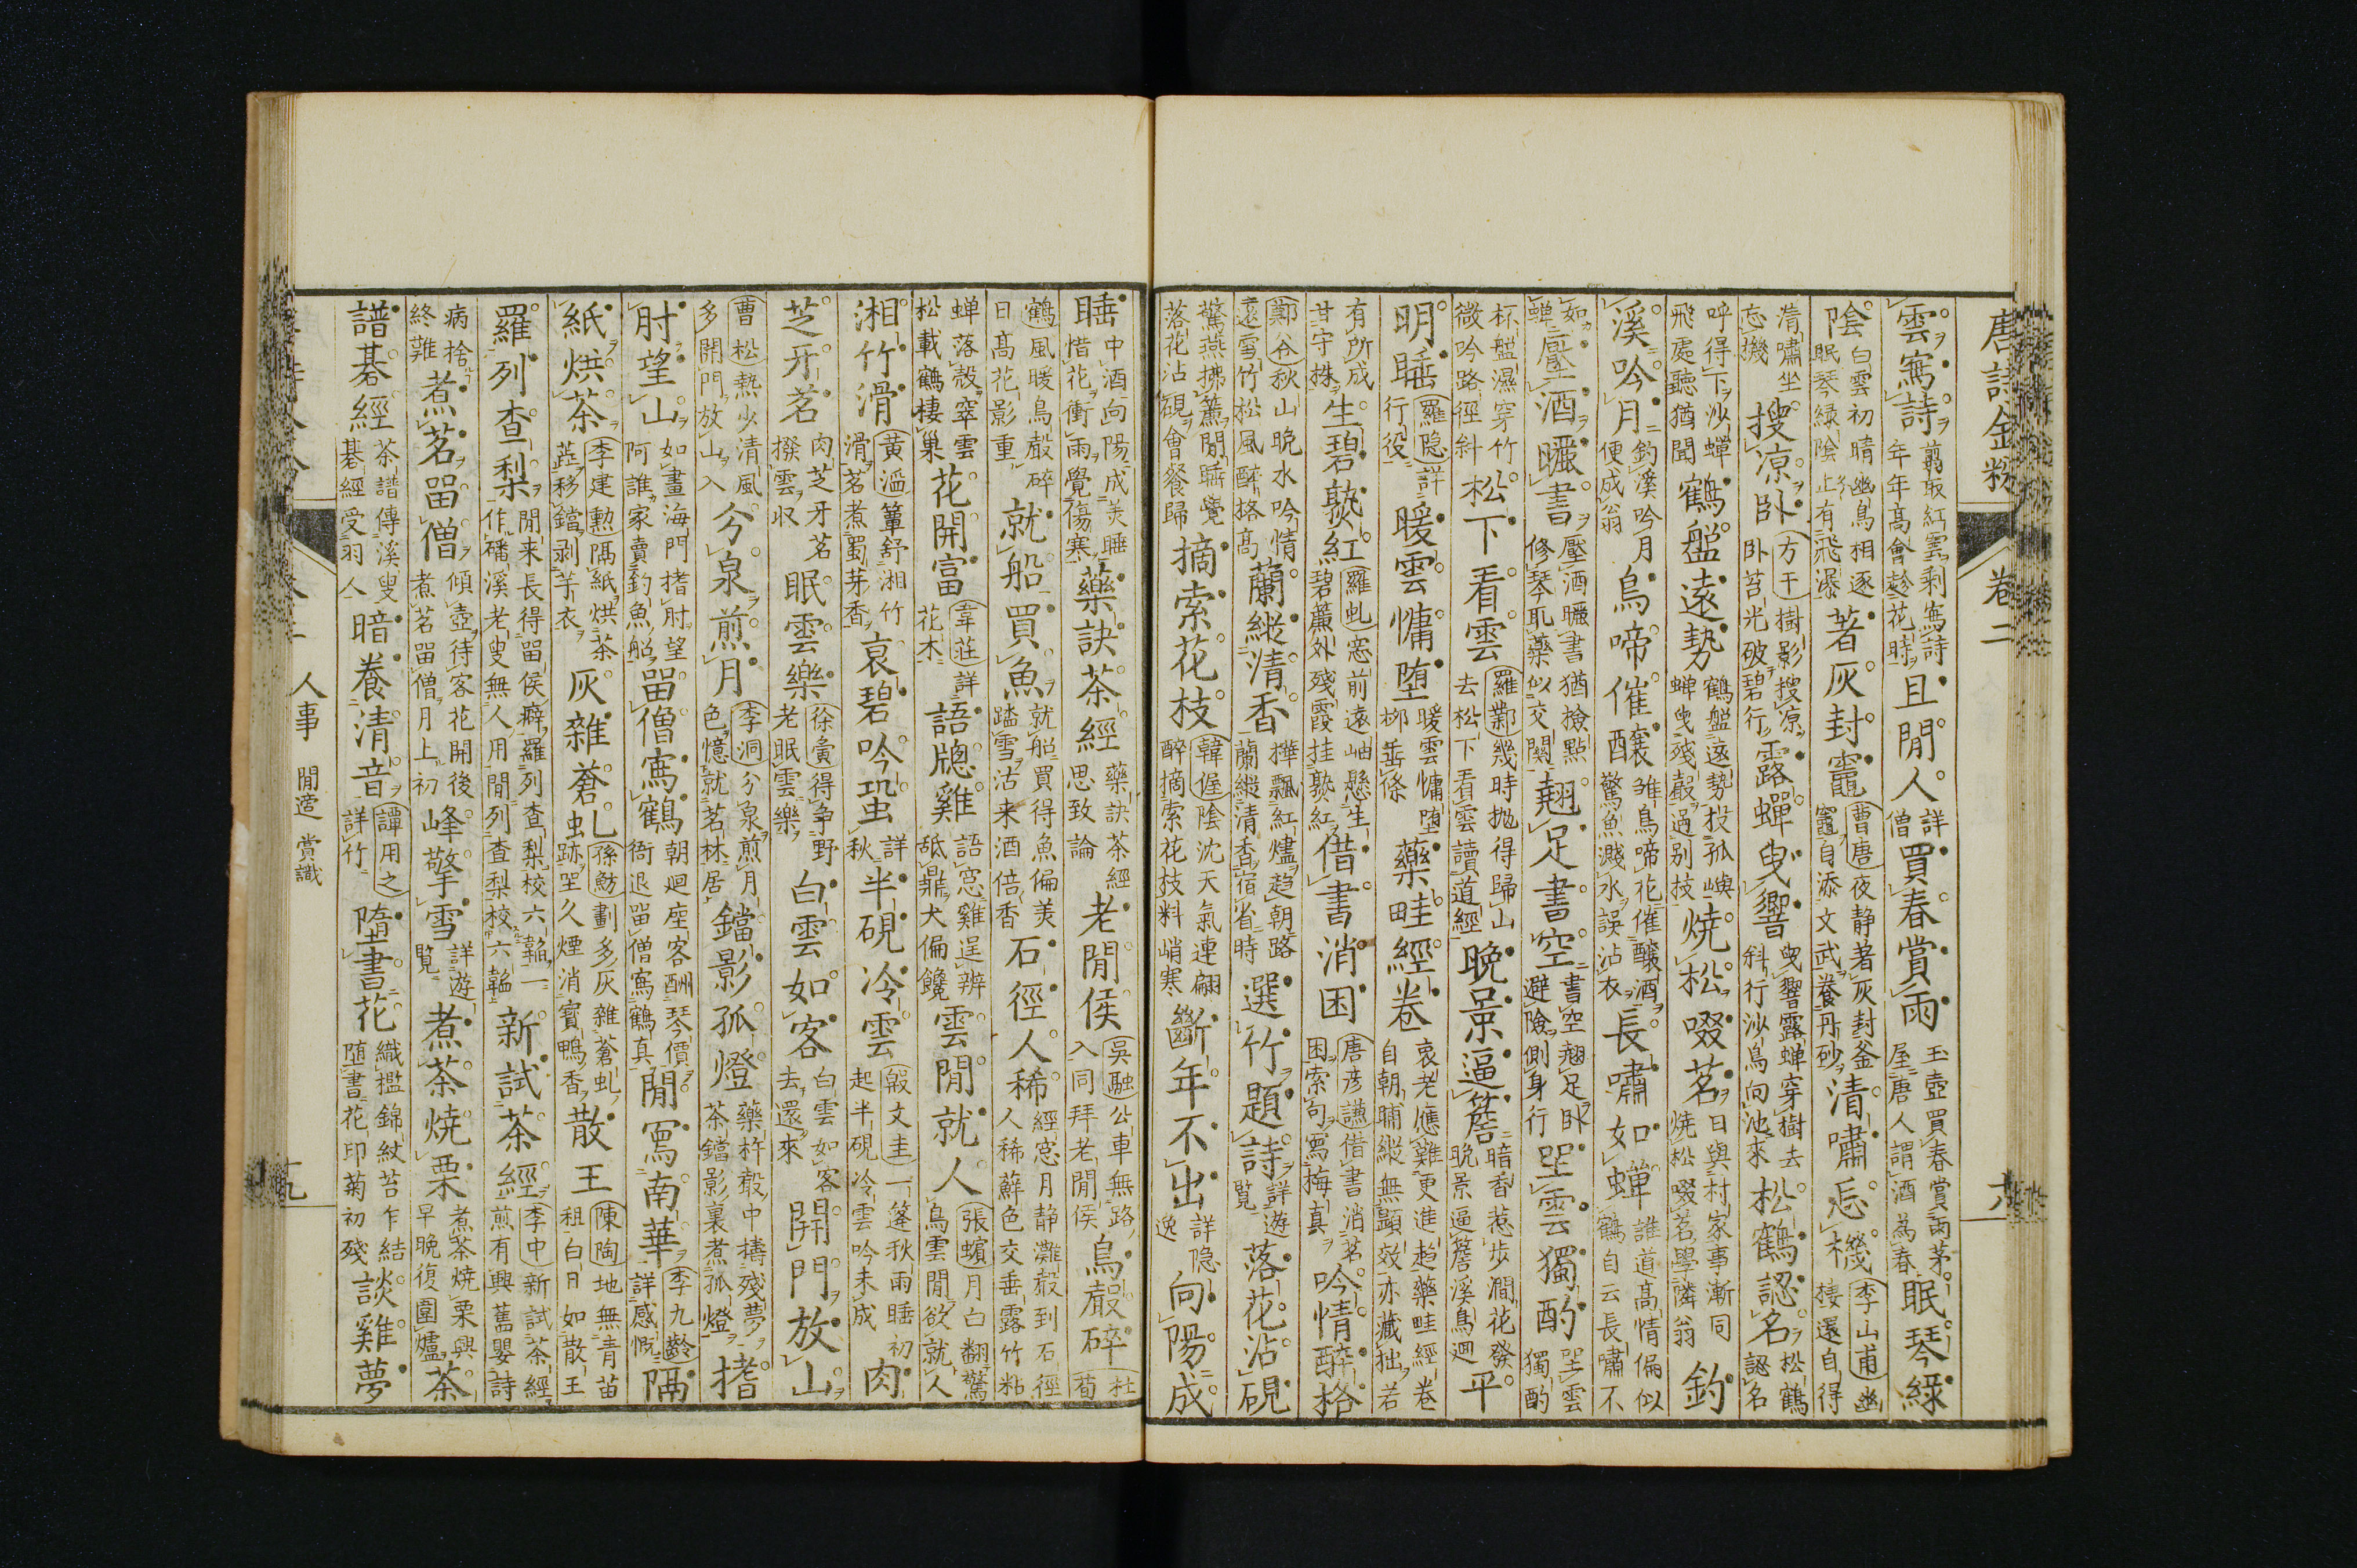 唐詩金粉 卷二 六
雲寫詩 翦取紅雲剩寫詩年年高會趁花時 且閒人 詳僧 買春賞雨 玉壺買春賞雨茅屋唐人謂酒為春 眠琴綠
陰 白雲初晴幽鳥相逐眠琴綠陰上有飛瀑 著灰封竈 曹唐夜靜著灰封釜竈自添文武養丹砂 清嘯忘機 李山甫幽棲還自得
清嘯坐忘機 搜凉臥 方干樹影搜凉臥苔光破碧行 露蟬曳響 曳響露蟬穿樹去斜行沙鳥向池來 松鶴認名 松鶴認名
呼得下沙蟬飛處聽猶聞 鶴盤遠勢 鶴盤遠勢投孤嶼蟬曳殘聲過別枝 燒松啜茗 日與村家事漸同燒松啜茗學隣翁 釣
溪吟月 釣溪吟月便成翁 鳥啼催釀 雛鳥啼花催釀酒驚魚濺水誤沾衣 長嘯如蟬 誰道高情偏似鶴自云長嘯不
如蟬 壓酒曬書 壓酒曬書猶撿點修琴取藥似交關 翹足書空 書空翹足臥避險側身行 坐雲獨酌 坐雲獨酌
杯盤濕穿竹微吟路徑斜 松下看雲 羅鄴幾時拋得歸山去松下看雲讀道經 晚景逼簷 暗香惹步澗花發晚景逼簷溪鳥迴 平
明睡 羅隱詳行役 暖雲慵墮 暖雲慵墮柳垂條 藥畦經卷 衰老應難更進趨藥畦經卷自朝晡縱無顯效亦藏拙若
有所成甘守株 生碧熟紅 羅虬窓前遠岫懸生碧簾外殘霞挂熟紅 借書消困 唐彥謙借書消茗困索句寫梅真 吟情醉格
鄭谷秋山晚水吟情遠雪竹松風醉格高 蘭縱清香 樺飄紅燼趨朝路蘭縱清香宿省時 選竹題詩 詳遊覽 落花沾硯
驚燕拂簾閒睡覺落花沾硯會餐歸 摘索花枝 韓偓陰沈天氣連翩醉摘索花枝料峭寒 斷年不出 詳隱逸 向陽成
睡 中酒向陽成美睡惜花衝雨覺傷寒 藥訣茶經 藥訣茶經思致論 老閒侯 吳融公車無路入同拜老閒侯 鳥聲碎 杜荀
鶴風暖鳥聲碎日高花影重 就船買魚 就船買得魚偏美踏雪沽來酒倍香 石徑人稀 經窓月靜灘聲到石徑人稀蘚色交垂露竹粘
蟬落殼窣雲松載鶴棲巢 花開富 韋莊詳花木 語牕雞 語窓雞逞辨舐鼎犬偏饞 雲閒就人 張蠙月白翻驚鳥雲閒欲就人
湘竹滑 黃滔簟舒湘竹滑茗煮蜀芽香 哀碧吟蛩 詳秋 半硯冷雲 殷文圭一篷秋雨睡初起半硯冷雲吟未成 肉
芝牙茗 肉芝牙茗撥雲収 眠雲樂 徐夤得爭野老眠雲樂 白雲如客 白雲如客去還來 開門放山
曹松熱少清風多開門放山入 分泉煎月 李洞分泉煎月色憶就茗林居 鐺影孤燈 藥杵聲中擣殘夢茶鐺影裏煮孤燈 搘
肘望山 如畫海門搘肘望阿誰家賣釣魚船 留僧寫鶴 朝迴座客酬琴價衙退留僧寫鶴真 閒寫南華 李九齡詳感慨 隔
紙烘茶 李建勳隔紙烘茶蕋移鐺剥芋衣 灰雜蒼虬 孫魴劃多灰雜蒼虬跡坐久煙消寶鴨香 散王 陳陶地無青苗租白日如散王
羅列查梨 閒來長得留侯癖羅列查梨校六韜一作磻溪老叟無人用閒列查梨校六韜 新試茶經 李中新試茶經煎有興舊嬰詩
病捨終難 煮茗留僧 傾壺待客花開後煮茗留僧月上初 峰擎雪 詳遊覽 煮茶燒栗 煮茶燒栗興早晚復圍爐 茶
譜碁經 茶譜傳溪叟碁經受羽人 暗養清音 譚用之詳竹 墮書花 織檻錦紋苔乍結墮書花印菊初殘 談雞夢
人事 閒適 賞識